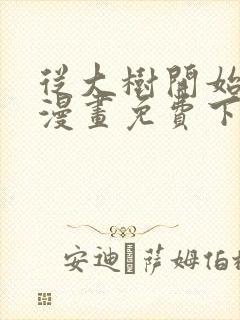 從大樹開始
漫畫免費下
安迪·薩姆伯